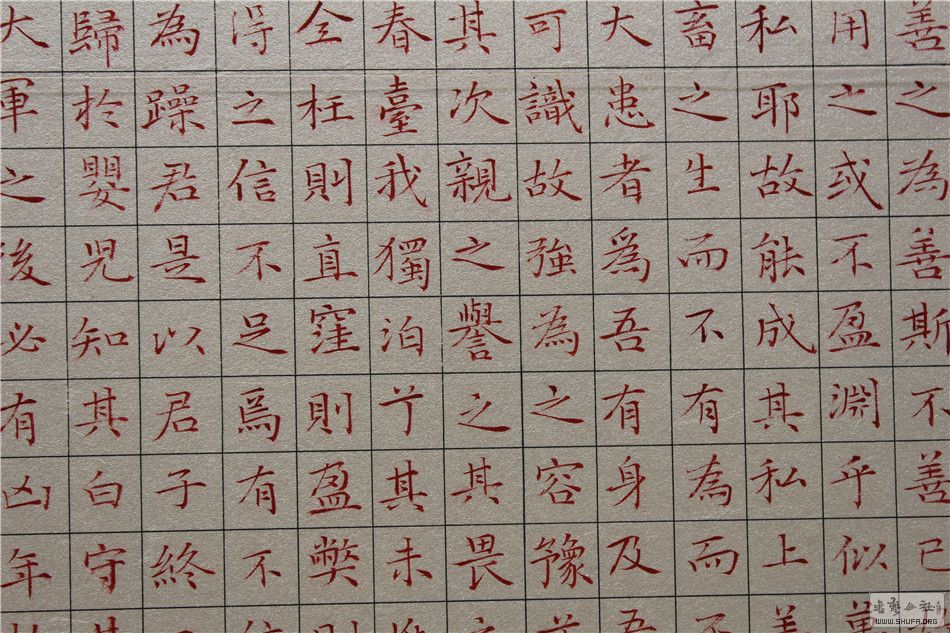 善之為善斯不善已
用之或不盈淵乎似萬
私耶故能成其私上善
畜之生而不有為而不
大患者爲吾有身及吾
可識故強為之容豫
其次親之譽之其畏之
春臺我獨泊兮其未兆
全枉則直窪則盈弊則
得之信不足焉有不信
為躁君是以君子終
歸於嬰兒知其白守其
大軍之後必有凶年
書藝公社
WWW.SHUFA.ORG